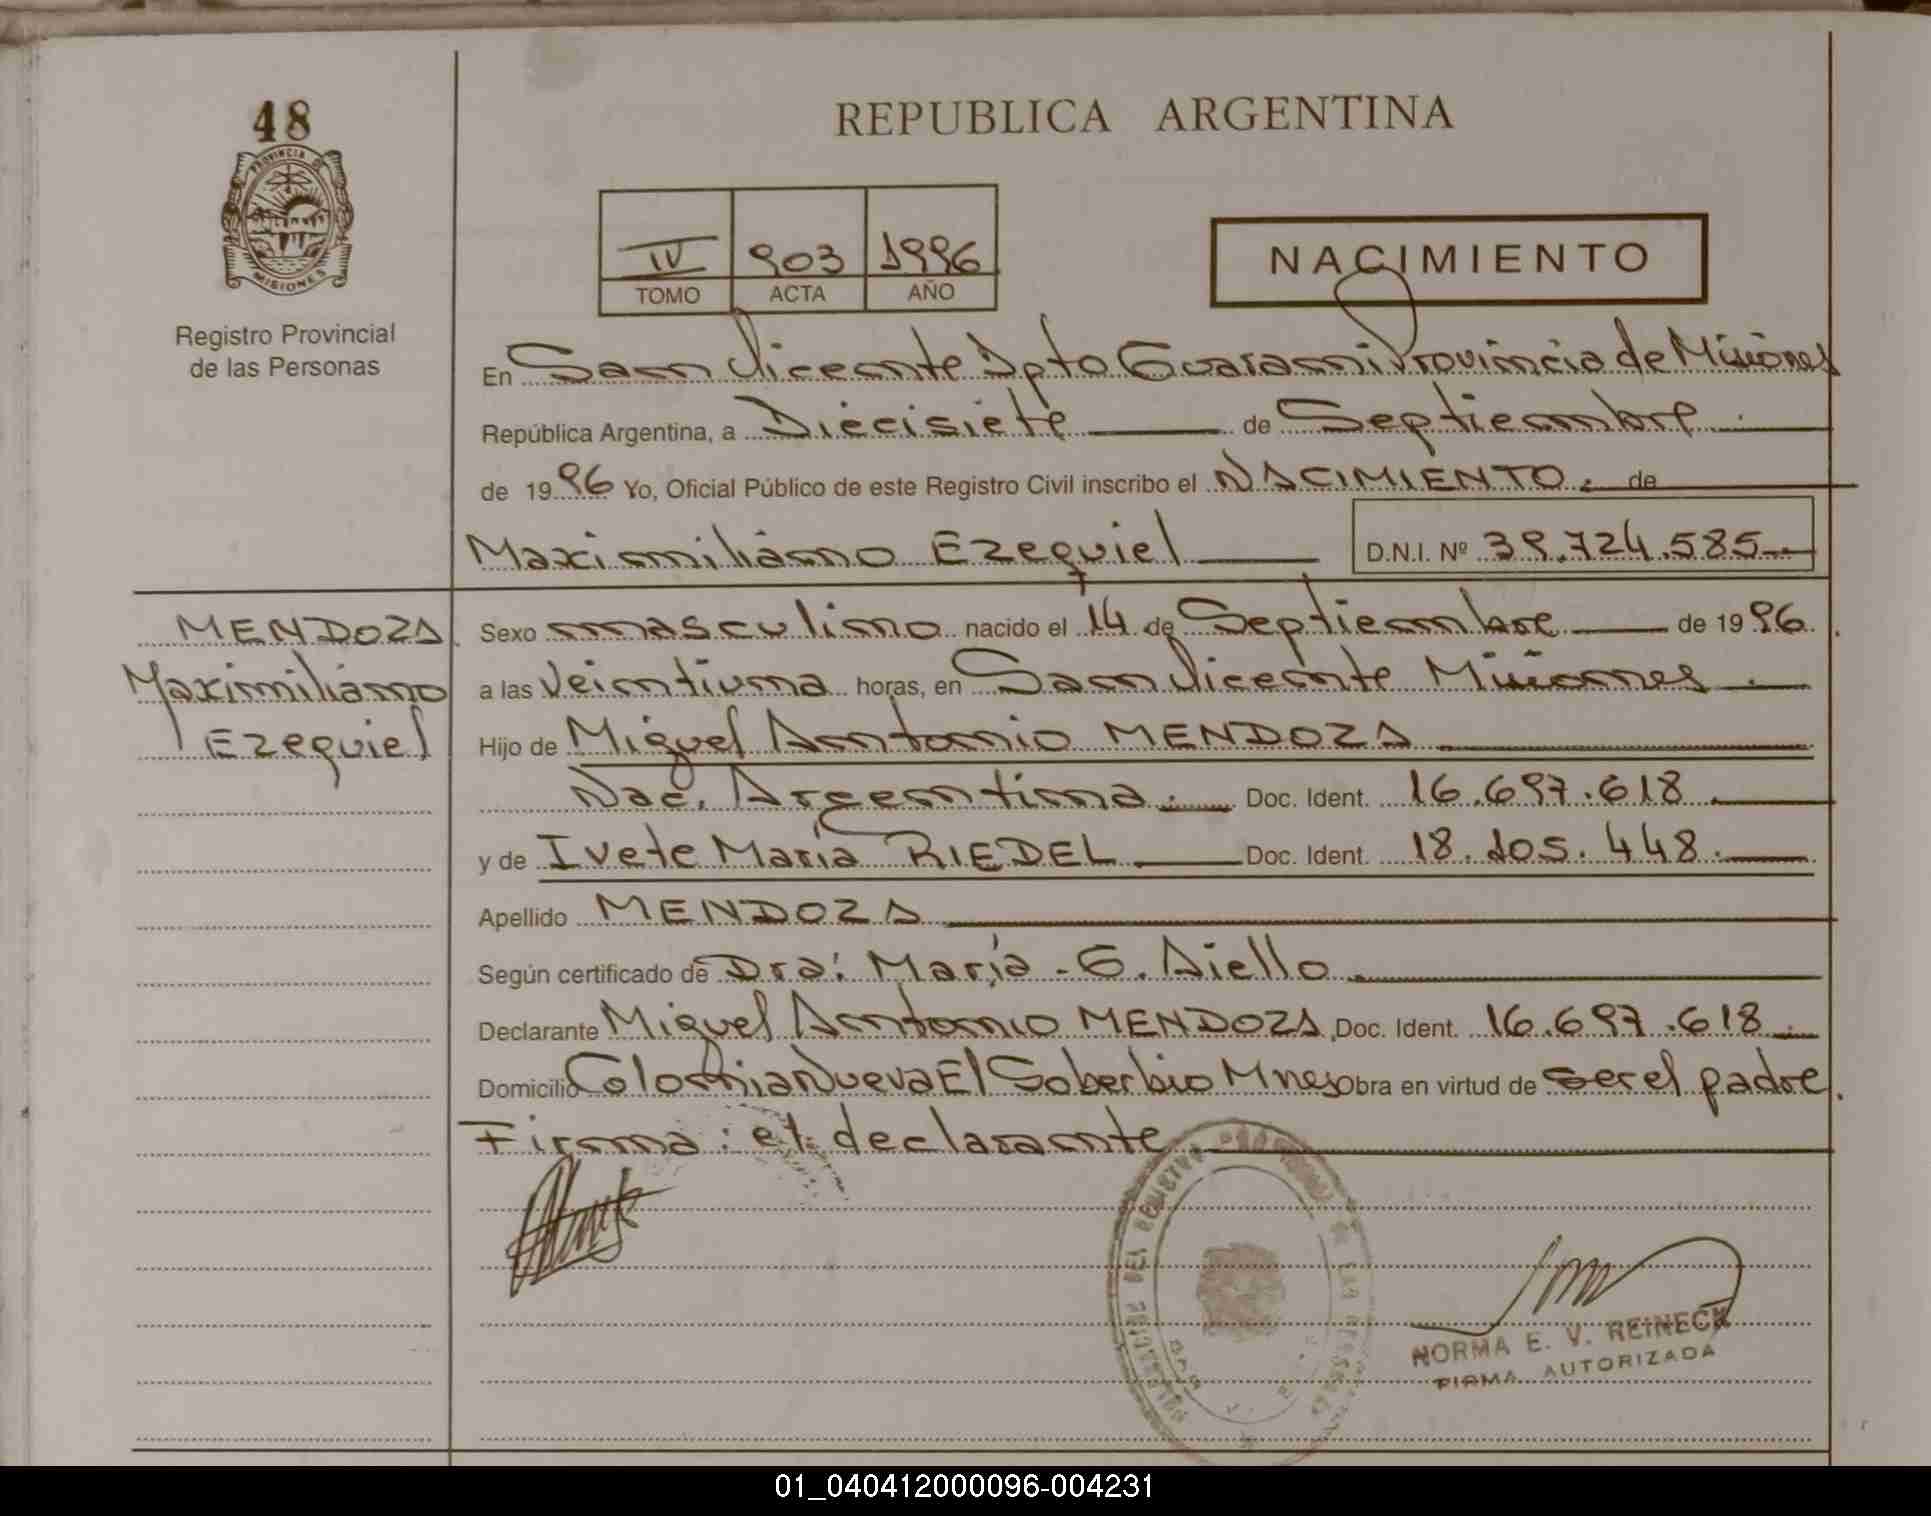 48
PROVINCIA DE
MISIONES
Registro Provincial
de las Personas
REPUBLICA ARGENTINA
IV 903 1996
TOMO ACTA AÑO
NACIMIENTO
En San Vicente Dpto Guarani Provincia de Misiones
República Argentina, a Diecisiete de Septiembre
de 1996 Yo, Oficial Público de este Registro Civil inscribo el NACIMIENTO. de
Maximiliano Ezequiel D.N.I. Nº 39.724.585
MENDOZA
Maximiliano
Ezequiel
Sexo masculino nacido el 14 de Septiembre de 1996.
a las Veintiuna horas, en San Vicente Misiones.
Hijo de Miguel Antonio MENDOZA
Nac. Argentina. Doc. Ident. 16.697.618.
y de Ivete María RIEDEL Doc. Ident. 18.205.448.
Apellido MENDOZA
Según certificado de Dra: María - G. Aiello.
Declarante Miguel Antonio MENDOZA, Doc. Ident. 16.697.618
Domicilio Colonia Nueva El Soberbio Mnes Obra en virtud de ser el padre.
Firma: el declarante
REGISTRO
NORMA E. V. REINECK
FIRMA AUTORIZADA
01_040412000096-004231